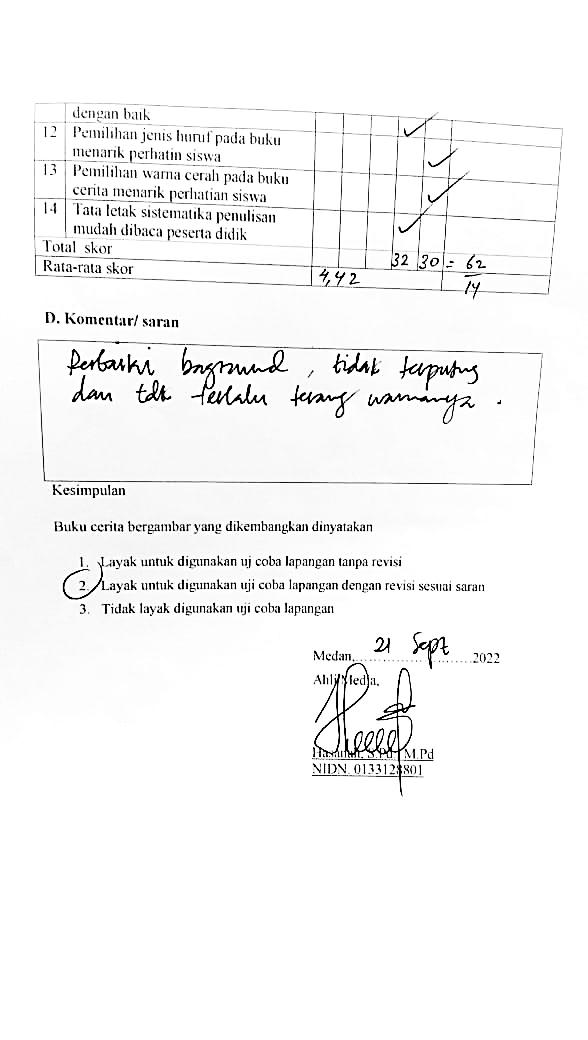 dengan baik
12 Pemilihan jenis huruf pada buku
menarik perhatin siswa
13 Pemilihan warna cerah pada buku
cerita menarik perhatian siswa
14 Tata letak sistematika penulisan
mudah dibaca peserta didik
Total skor 32 30 = 62
Rata-rata skor 4,42 14
D. Komentar/ saran
Perbaiki baground , tidak terputus
dan tdk terlalu terang warnanya .
Kesimpulan
Buku cerita bergambar yang dikembangkan dinyatakan
1. Layak untuk digunakan uj coba lapangan tanpa revisi
2. Layak untuk digunakan uji coba lapangan dengan revisi sesuai saran
3. Tidak layak digunakan uji coba lapangan
Medan, 21 Sept 2022
Ahli Media,
S.Pd., M.Pd
NIDN. 0133128801